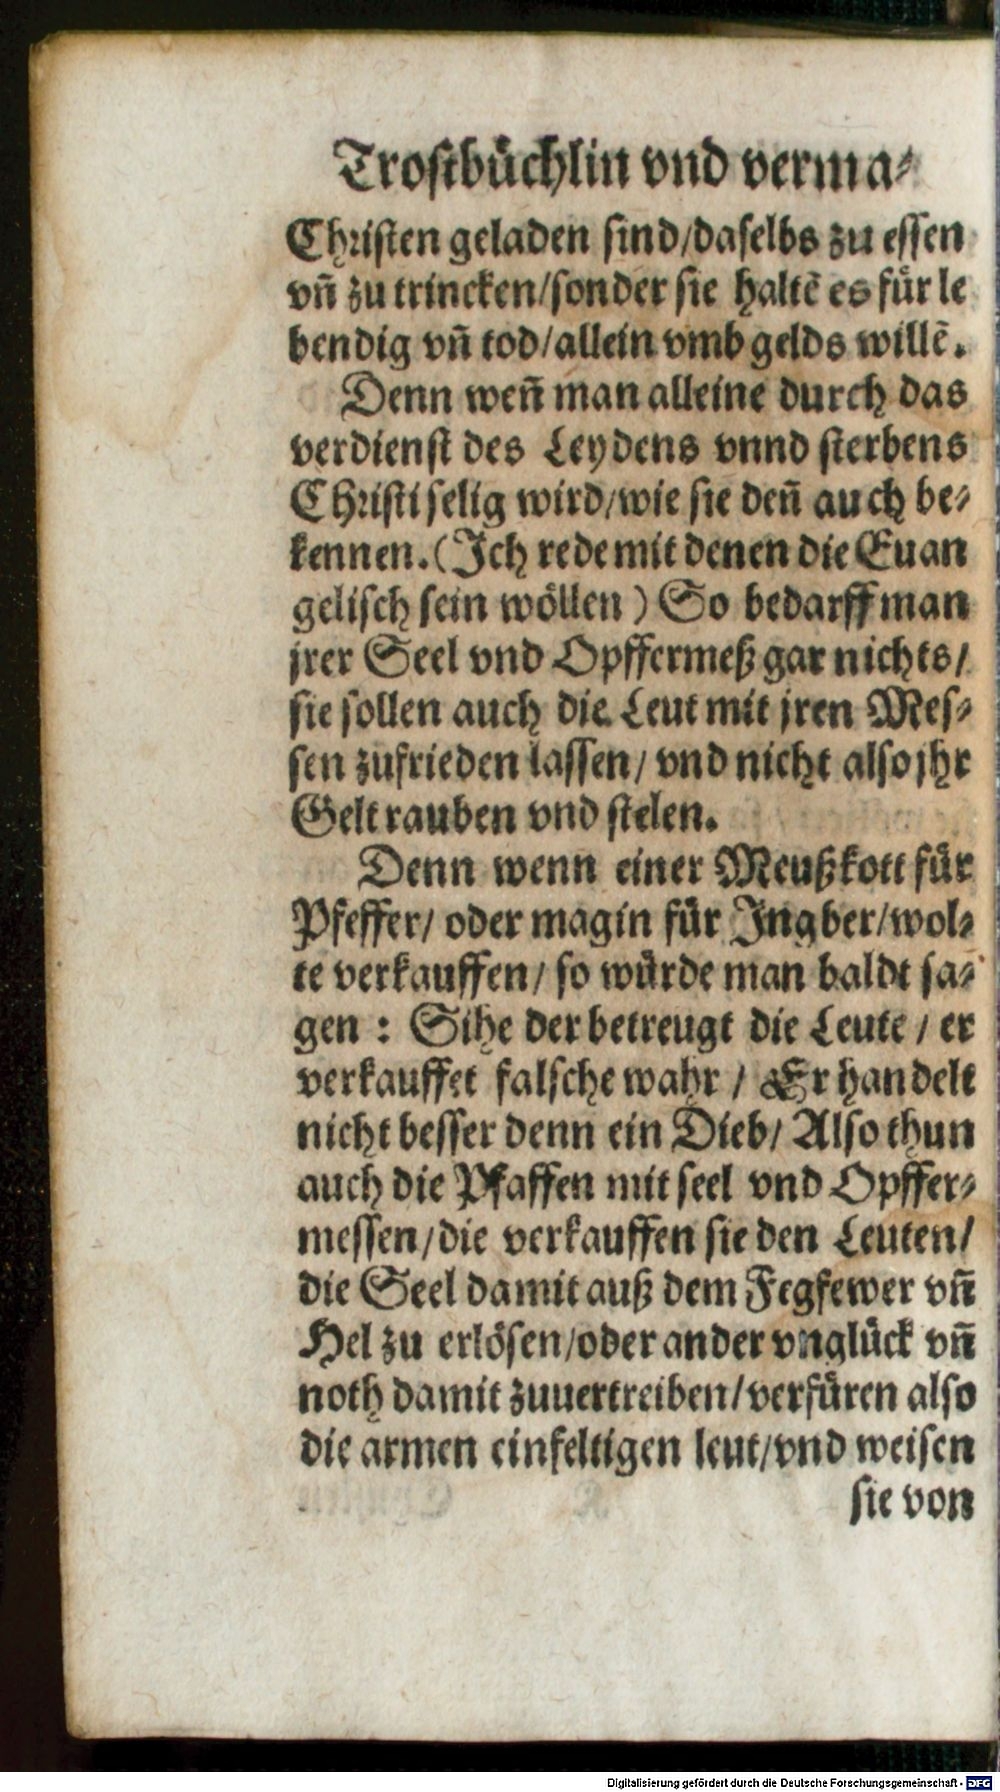 Trostbüchlin vnd verma⸗
Christen geladen sind/daselbs zu essen
vñ zu trincken/sonder sie haltẽ es für le
bendig vñ tod/allein vmb gelds willẽ.
Denn weñ man alleine durch das
verdienst des Leydens vnnd sterbens
Christi selig wird/wie sie deñ auch be⸗
kennen.(Ich rede mit denen die Euan
gelisch sein wöllen) So bedarff man
jrer Seel vnd Opffermeß gar nichts/
sie sollen auch die Leut mit jren Mes⸗
sen zufrieden lassen/ vnd nicht also jhr
Gelt rauben vnd stelen.
Denn wenn einer Meußkott für
Pfeffer/ oder magin für Ingber/wol⸗
te verkauffen/ so würde man baldt sa⸗
gen : Sihe der betreugt die Leute / er
verkauffet falsche wahr / Er handelt
nicht besser denn ein Dieb/ Also thun
auch die Pfaffen mit seel vnd Opffer⸗
messen/die verkauffen sie den Leuten/
die Seel damit auß dem Fegfewer vñ
Hel zu erlösen/oder ander vnglück vñ
noth damit zuuertreiben/verfüren also
die armen einfeltigen leut/vnd weisen
sie von
Digitalisierung gefördert durch die Deutsche Forschungsgemeinschaft - DFG